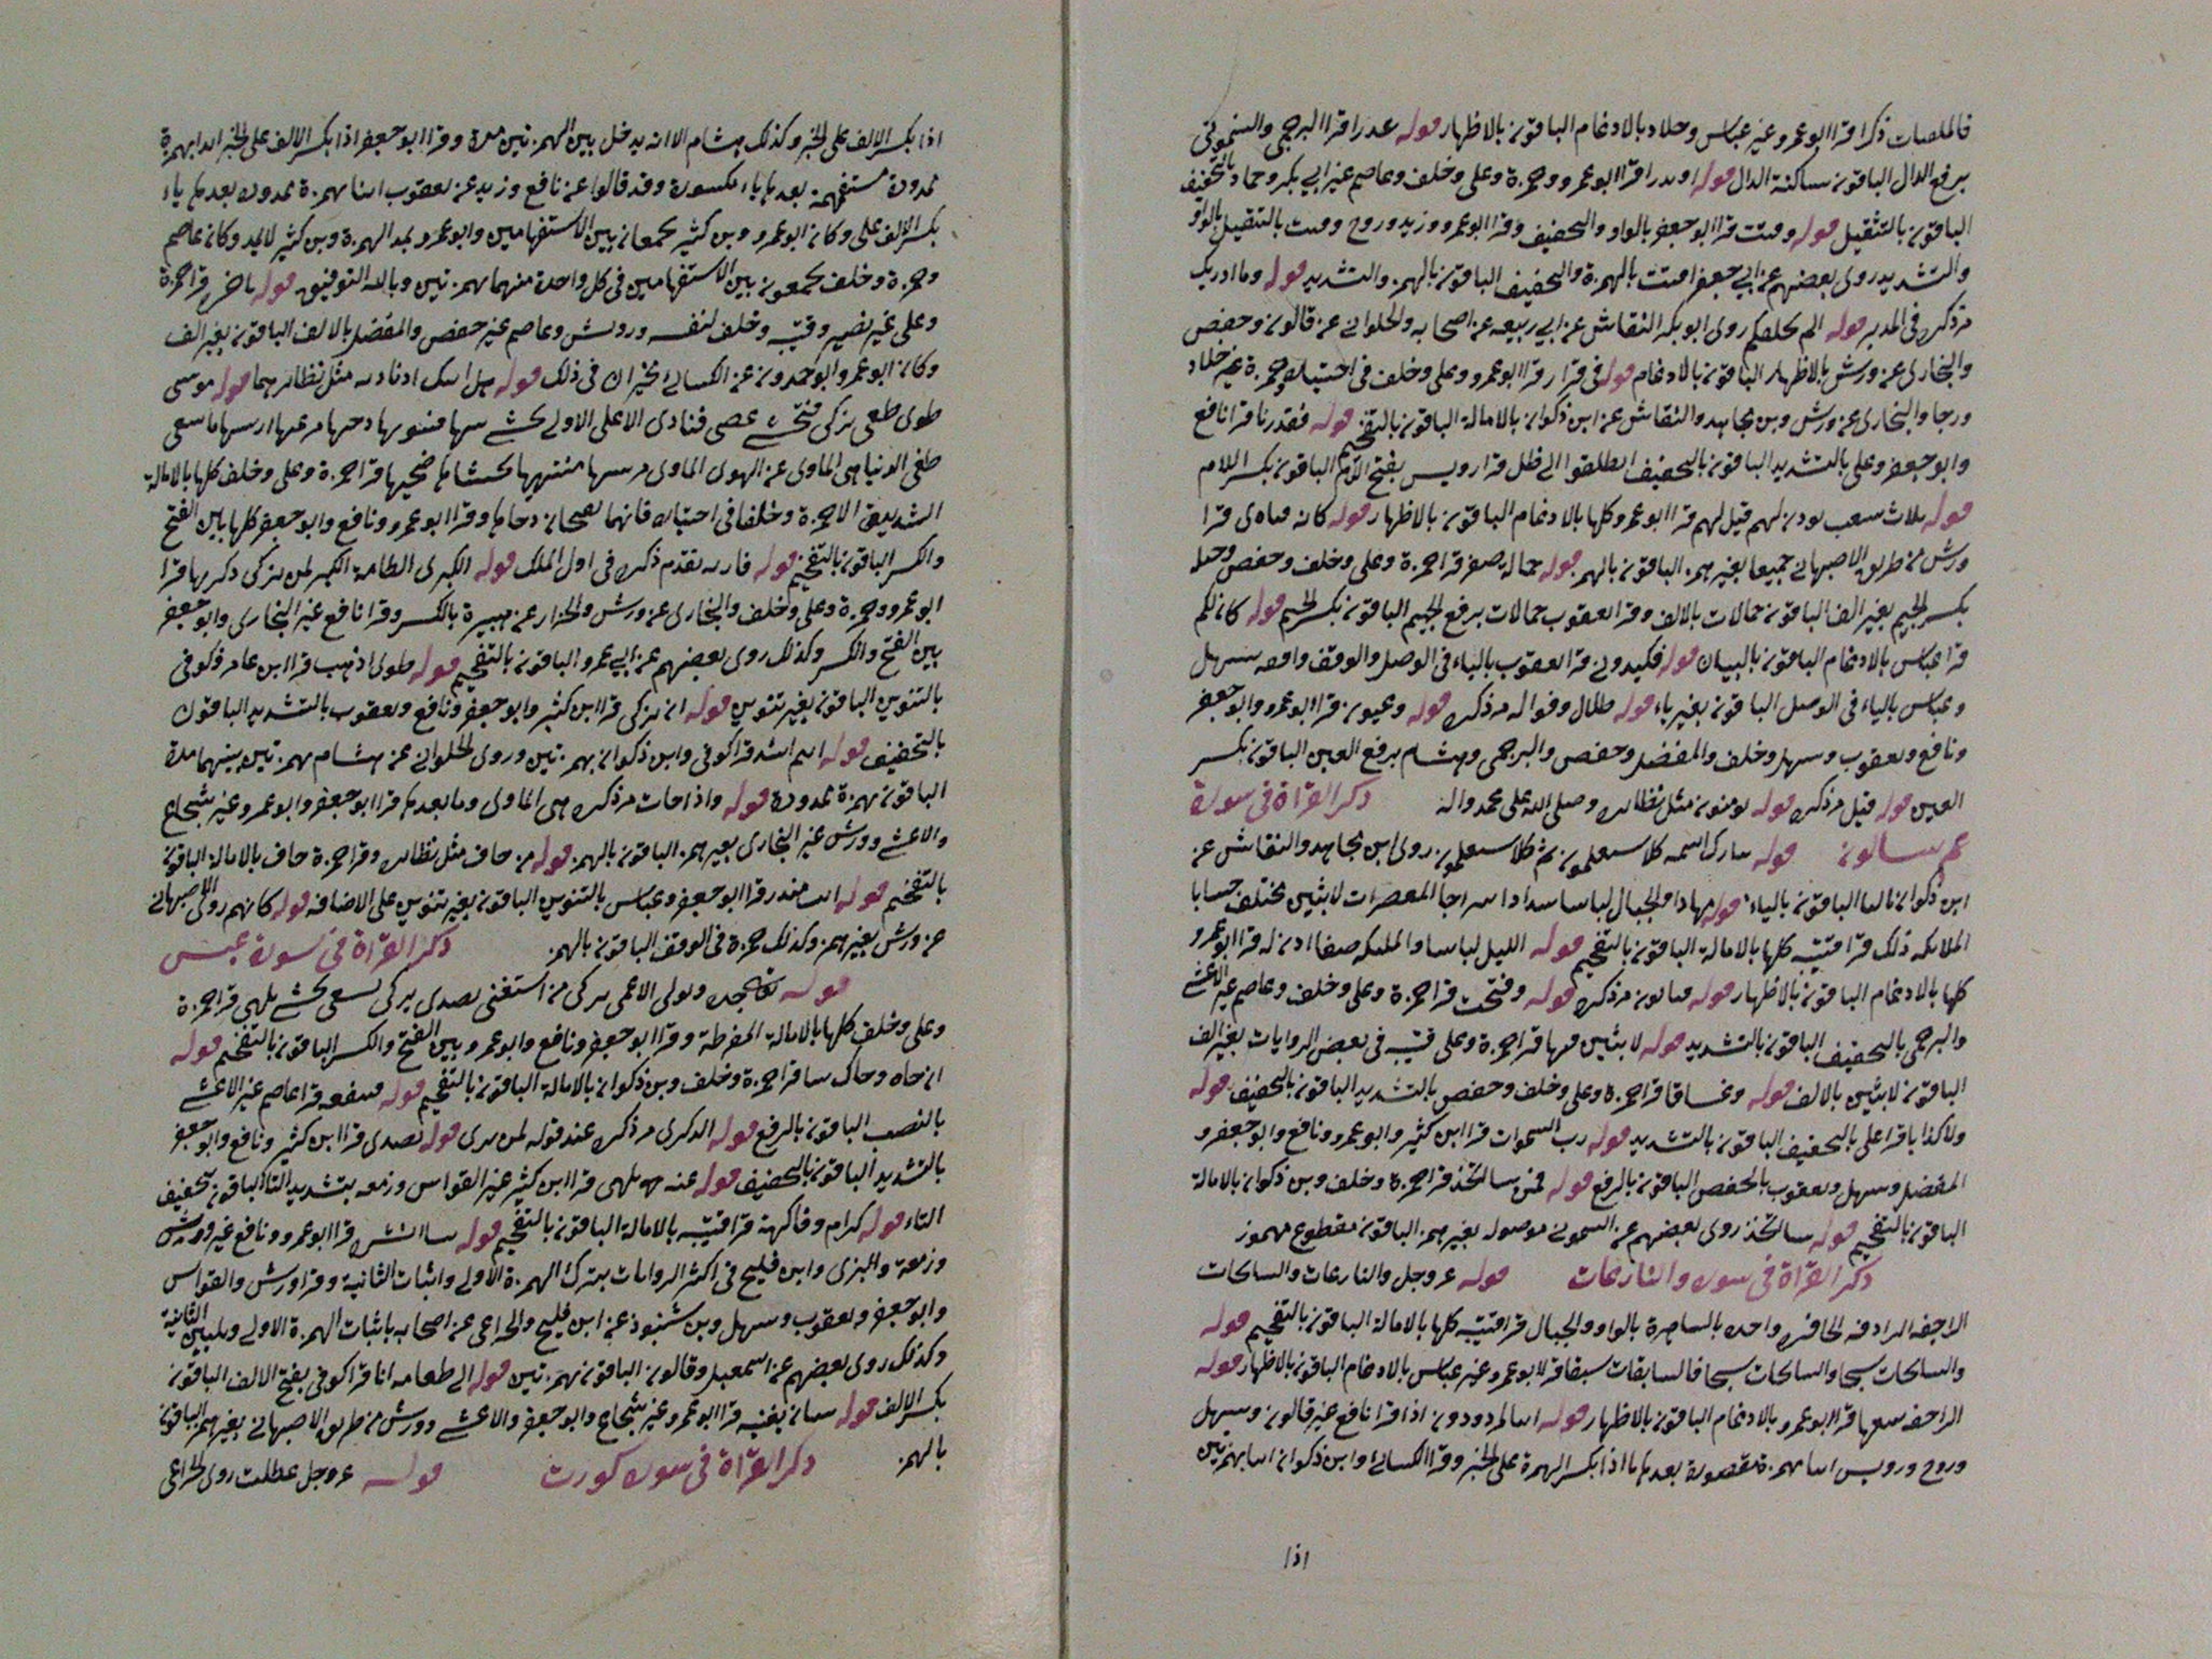 فالملقيات ذكرا قرا ابو عمرو غير عباس وخلاد بالادغام الباقون بالاظهار قوله عذرا قرا البرجمى والشموني
برفع الذال الباقون ساكنة الذال قوله او نذرا قرا ابو عمرو وحمزة وعلى وخلف وعاصم غير ابي بكر وحماد بالتخفيف
الباقون بالتثقيل قوله وقتت قرا ابو جعفر بالواو والتخفيف وقرا ابو عمرو وزيد وروح وقتت بالتثقيل بالواو
والتشديد روى بعضهم عن ابي جعفر اقتت بالهمزة والتخفيف الباقون بالهمز والتشديد قوله وما ادريك
مر ذكره في المدثر قوله الم نخلقكم روى ابو بكر النقاش عن ابي ربيعه عن اصحابه والحلوانى عن قالون وحفص
والبخارى عن ورش بالاظهار الباقون بالادغام قوله في قرار قرا ابو عمرو وعلى وخلف في اختياره وحمزة غير خلاد
ورجا والبخارى عن ورش وبن مجاهد والنقاش عن ابن ذكوان بالامالة الباقون بالتفخيم قوله فقدرنا قرا نافع
وابو جعفر وعلى بالتشديد الباقون بالتخفيف انطلقوا الى ظل قرا رويس بفتح اللام الباقون بكسر اللام
قوله ثلاث شعب يوذن لهم قيل لهم قرا ابو عمرو كلها بالادغام الباقون بالاظهار قوله كانه قرا
ورش من طريق الاصبهانى جميعا بغير همز الباقون بالهمز قوله جمالة صفر قرا حمزة وعلى وخلف وحفص
بكسر الجيم بغير الف الباقون جمالات بالالف وقرا يعقوب جمالات برفع الجيم الباقون بكسر الجيم قوله كان لكم
قرا عباس بالادغام الباقون بالبيان قوله فكيدونى قرا يعقوب بالياء في الوصل والوقف وافقه سهل
وعباس بالياء في الوصل الباقون بغير ياء قوله ظلال وفواكه مر ذكره قوله وعيون قرا ابو عمرو وابو جعفر
ونافع ويعقوب وسهل وخلف والمفضل وحفص والبرجمى وهشام برفع العين الباقون بكسر
العين قوله قيل مر ذكره قوله يومنون مثل نظائره وصلى الله على محمد واله ذكر القرآة في سورة
عم يتسالون قوله تبارك اسمه كلا سيعلمون ثم كلا سيعلمون روى ابن مجاهد والنقاش عن
ابن ذكوان بالتا الباقون بالياء قوله مهادا والجبال لباسا شدادا سراجا المعصرات لابثين مختلف حسابا
الملايكه ذلك قرا قتيبه كلها بالامالة الباقون بالتفخيم قوله الليل لباسا والمليكه صفا اذن له قرا ابو عمرو
كلها بالادغام الباقون بالاظهار قوله فتاتون مر ذكره قوله وفتحت قرا حمزة وعلى وخلف وعاصم غير الاعشى
والبرجمى بالتخفيف الباقون بالتشديد قوله لابثين فيها قرا حمزة وعلى قتيبه في بعض الروايات بغير الف
الباقون لابثين بالالف قوله وغساقا قرا حمزة وعلى وخلف وحفص بالتشديد الباقون بالتخفيف قوله
ولا كذابا قرا على بالتخفيف الباقون بالتشديد قوله رب السموات قرا ابن كثير وابو عمرو ونافع وابو جعفر و
المفضل وسهل ويعقوب بالخفض الباقون بالرفع قوله فمن شا اتخذ قرا حمزة وخلف وبن ذكوان بالامالة
الباقون بالتفخيم قوله شا اتخذ روى بعضهم عن السمونى موصوله بغير همز الباقون مقطوع مهموز
ذكر القرآة في سورة والنازعات قوله عز وجل والنازعات والسابحات
الراجفه الرادفه الحافره واحده بالساهرة بالواد والجبال قرا قتيبه كلها بالامالة الباقون بالتفخيم قوله
والسابحات سبحا والسابحات سبحا فالسابقات سبقا قرا ابو عمرو غير عباس بالادغام الباقون بالاظهار قوله
الراجفه تتبعها قرا ابو عمرو بالادغام الباقون بالاظهار قوله اينا لمردودون اذا قرا نافع غير قالون وسهل
وروح ورويس اينا بهمزة مقصورة بعدها يا اذا بكسر الهمزة على الخبر وقرا الكسائى وابن ذكوان اينا بهمزتين
اذا
اذا بكسر الالف على الخبر وكذلك هشام الا انه يدخل بين الهمزتين مدة وقرا ابو جعفر اذا بكسر الالف على الخبر اينا بهمزة
ممدودة مستفهمة بعدها ياء مكسورة وقد قالوا عن نافع وزيد عن يعقوب اينا بهمزة ممدودة بعدها ياء
بكسر الالف على وكان ابو عمرو وبن كثير يجمعان بين الاستفهامين وابو عمرو يمد الهمزة وبن كثير لا يمد وكان عاصم
وحمزة وخلف يجمعون بين الاستفهامين في كل واحدة منهما بهمزتين وبالله التوفيق قوله ناخرة قرا حمزة
وعلى غير نصير وقتيبه وخلف لنفسه ورويس وعاصم غير حفص والمفضل بالالف الباقون بغير الف
وكان ابو عمرو وابو حمدون عن الكسائى يخيران في ذلك قوله هل اتيك اذ ناداه مثل نظائرهما قوله موسى
طوى طغى تزكى فتخشى عصى فنادى الاعلى الاولى يخشى بنيها فسويها دحيها مرعيها ارسيها ما سعى
طغى الدنيا هى الماوى عن الهوى الماوى مرسيها منتهيها يخشاها ضحيها قرا حمزة وعلى وخلف كلها بالامالة
الشديدة الا حمزة وخلفا في اختياره فانهما يفتحان دحاها وقرا ابو عمرو ونافع وابو جعفر كلها بين الفتح
والكسر الباقون بالتفخيم قوله فاريه تقدم ذكره في اول الملك قوله الكبرى الطامة الكبر لمن تزكى ذكريها قرا
ابو عمرو وحمزة وعلى وخلف والبخارى عن ورش والخزاز عن هبيرة بالكسر وقرا نافع غير البخارى وابو جعفر
بين الفتح والكسر وكذلك روى بعضهم عن ابي عمرو الباقون بالتفخيم قوله طوى اذهب قرا ابن عامر وكوفى
بالتنوين الباقون بغير تنوين قوله ان تزكى قرا ابن كثير وابو جعفر ونافع ويعقوب بالتشديد الباقون
بالتخفيف قوله اانتم اشد قرا كوفى وابن ذكوان بهمزتين وروى الحلوانى عن هشام بهمزتين بينهما مدة
الباقون بهمزة ممدودة قوله واذا جات مر ذكره هى الماوى وما بعدها قرا ابو جعفر وابو عمرو غير شجاع
والاعشى وورش غير البخارى بغير همز الباقون بالهمز قوله من خاف مثل نظائره وقرا حمزة خاف بالامالة الباقون
بالتفخيم قوله انت منذر قرا ابو جعفر وعباس بالتنوين الباقون بغير تنوين على الاضافه قوله كانهم روى الاصبهانى
عن ورش بغير همز وكذلك حمزة في الوقف الباقون بالهمز ذكر القرآة في سورة عبس
قوله وتولى الاعمى يزكى من استغنى تصدى يزكى يسعى يخشى تلهى قرا حمزة
وعلى وخلف كلها بالامالة المفرطة وقرا ابو جعفر ونافع وابو عمرو بين الفتح والكسر الباقون بالتفخيم قوله
ان جاه وجاك شا قرا حمزة وخلف وبن ذكوان بالامالة الباقون بالتفخيم قوله فتنفعه قرا عاصم غير الاعشى
بالنصب الباقون بالرفع قوله الذكرى مر ذكره عند قوله لمن يرى قوله تصدى قرا ابن كثير ونافع وابو جعفر
بالتشديد الباقون بالتخفيف قوله عنه تلهى قرا ابن كثير غير القواس وزمعه بتشديد التا الباقون بتخفيف
التاء قوله كرام وفاكهة قرا قتيبه بالامالة الباقون بالتفخيم قوله شا انشره قرا ابو عمرو ونافع غير ورش
وزمعة والبزى وابن فليح في اكثر الروايات بترك الهمزة الاولى واثبات الثانية وقرا ورش والقواس
وابو جعفر ويعقوب وسهل وبن شنبوذ عن ابن فليح والخزاعى عن اصحابه باثبات الهمزة الاولى وتليين الثانية
وكذلك روى بعضهم عن اسمعيل وقالون الباقون بهمزتين قوله الى طعامه انا قرا كوفى بفتح الالف الباقون
بكسر الالف قوله شان يغنيه قرا ابو عمرو غير شجاع وابو جعفر والاعشى وورش من طريق الاصبهانى بغير همز الباقون
بالهمز ذكر القرآة في سورة كورت قوله عز وجل عطلت روى الخزاعى